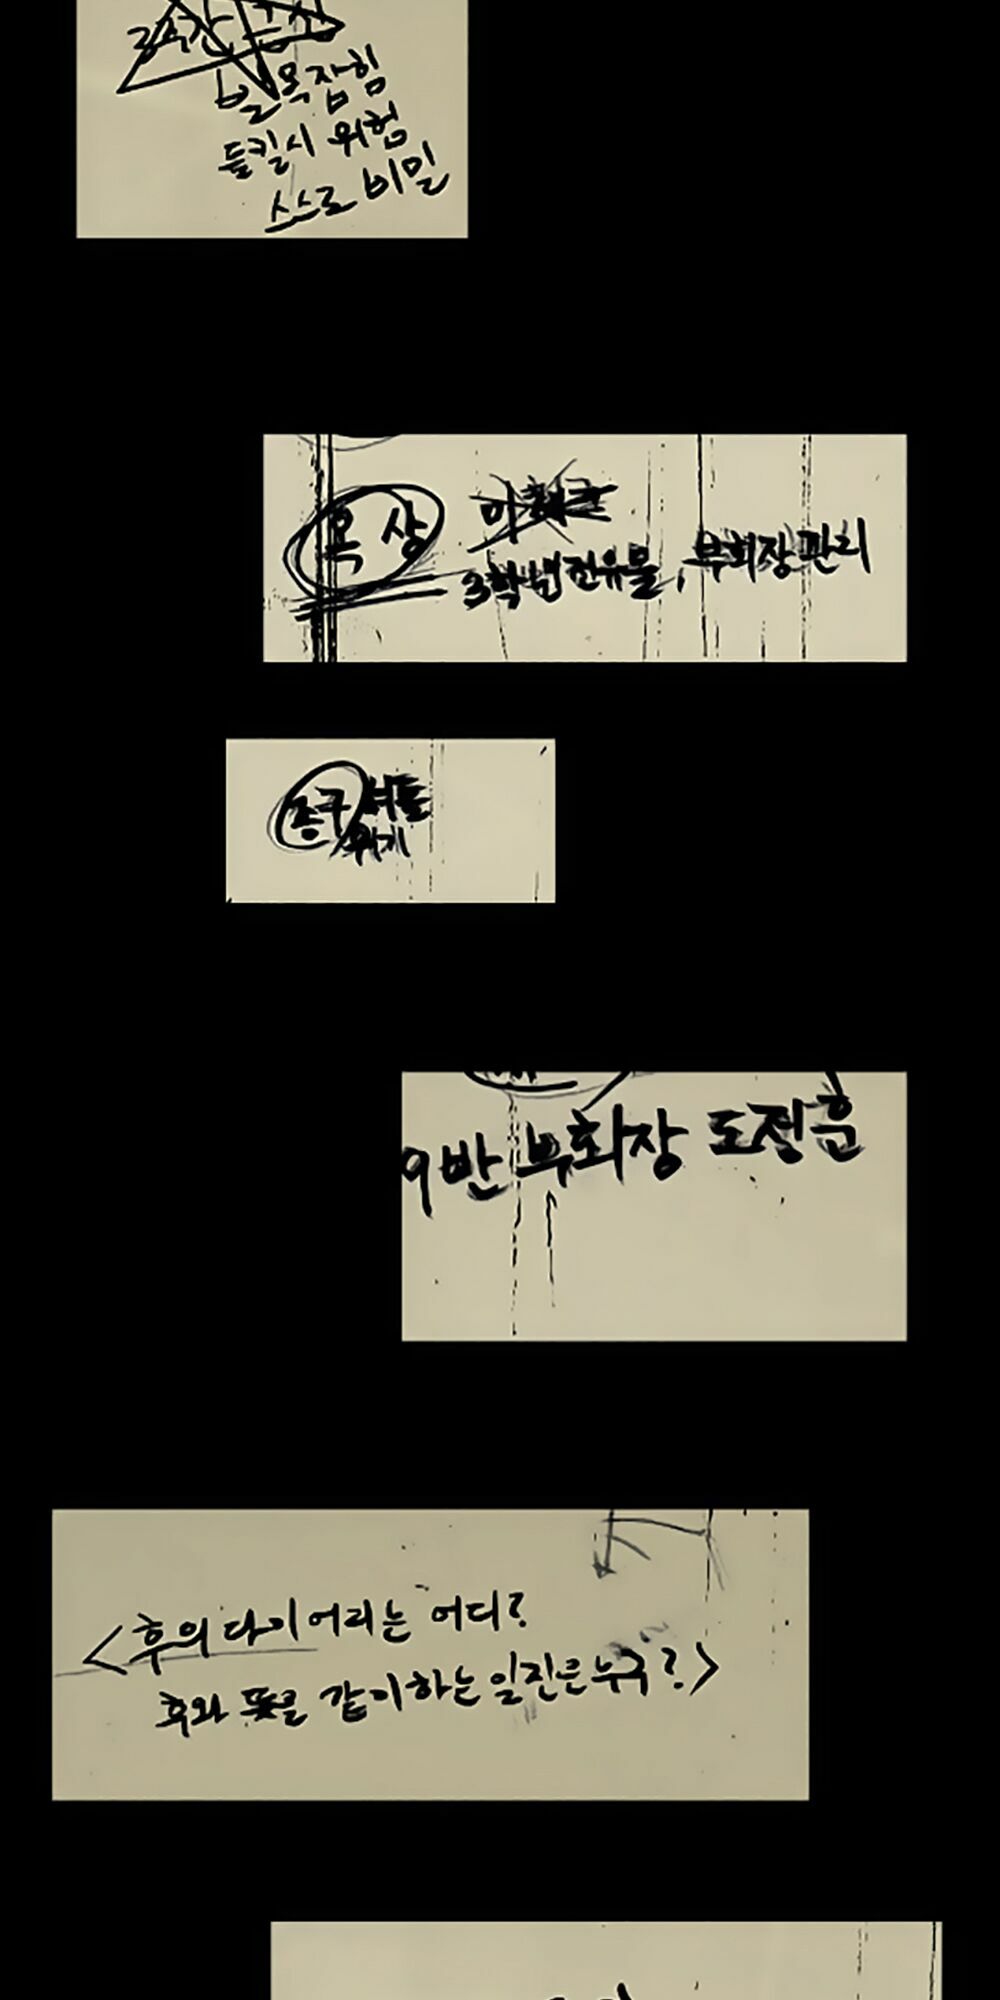 발목잡힘
들킬시 위험
스스로 비밀
옥상
3학년전유물, 부회장관리
종구 셔틀
9반 부회장 도정훈
<후의 다이어리는 어디?
후와 뜻을 같이하는 일진은누구?>